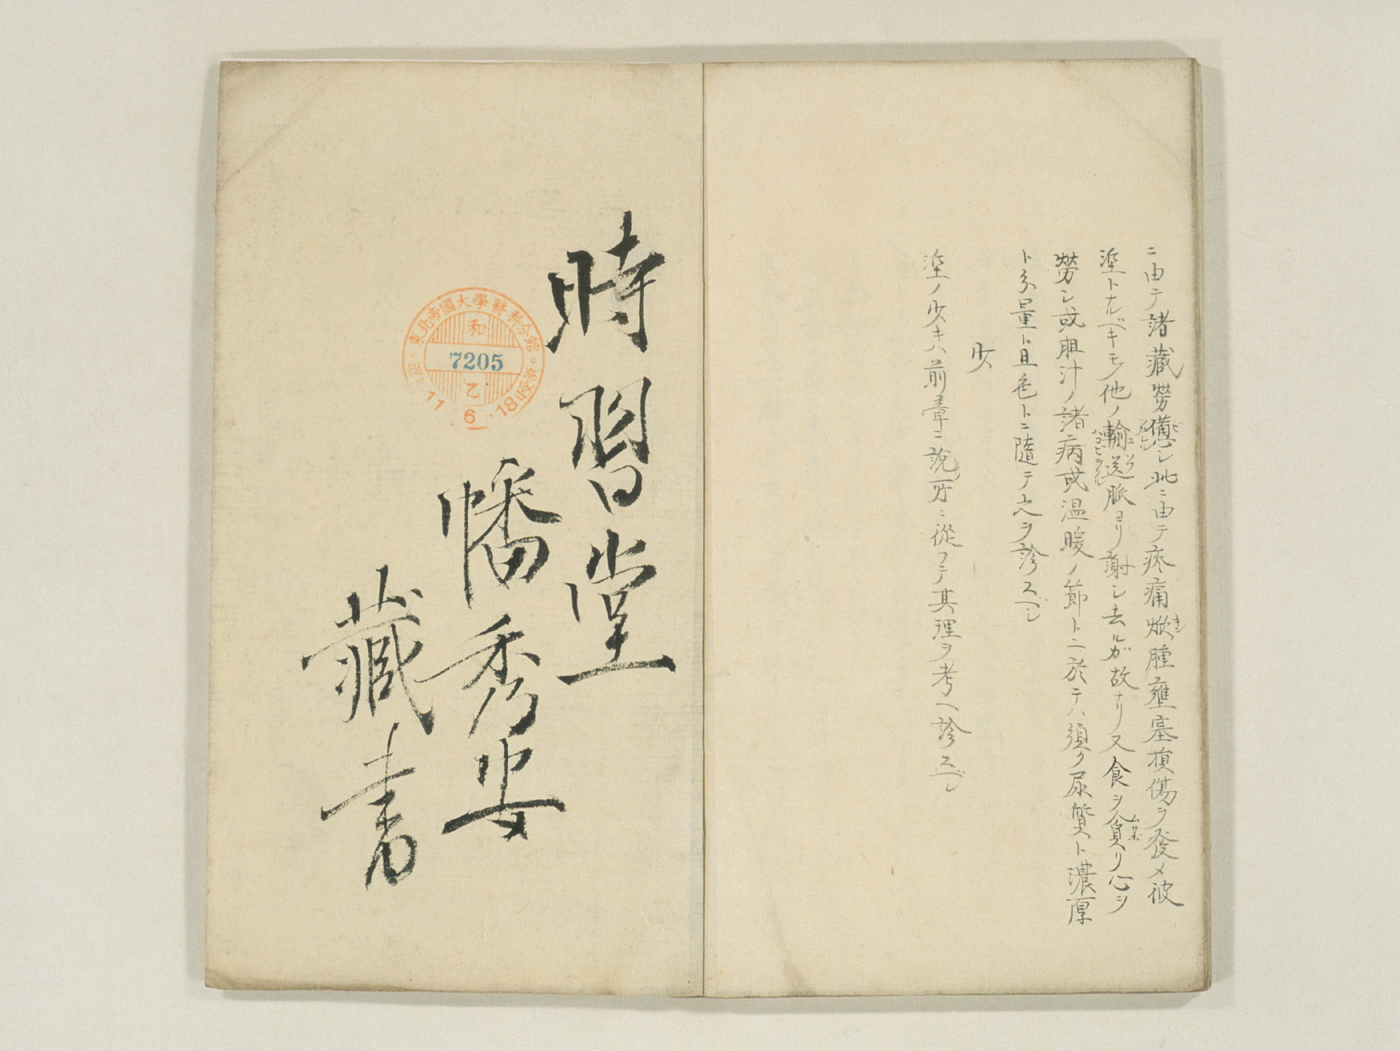 ニ由テ諸藏勞憊シ此ニ由テ疼痛焮腫壅塞損傷ヲ發メ彼
滓トナルベキモノ他ノ輸送脈ヨリ謝シ去ルガ故ナリ又食ヲ貪リ心ヲ
勞シ或胆汁ノ諸病或温暖ノ節トニ於テハ須ク尿質ト濃厚
ト分量ト且色トニ隨テ之ヲ診スベシ
少
滓ノ少キハ前章ニ説所ニ從フテ其理ヲ考ヘ診スベシ
時習堂
幡秀安
藏書
東北帝國大學醫科分館
和
7205
乙
11 6 -18